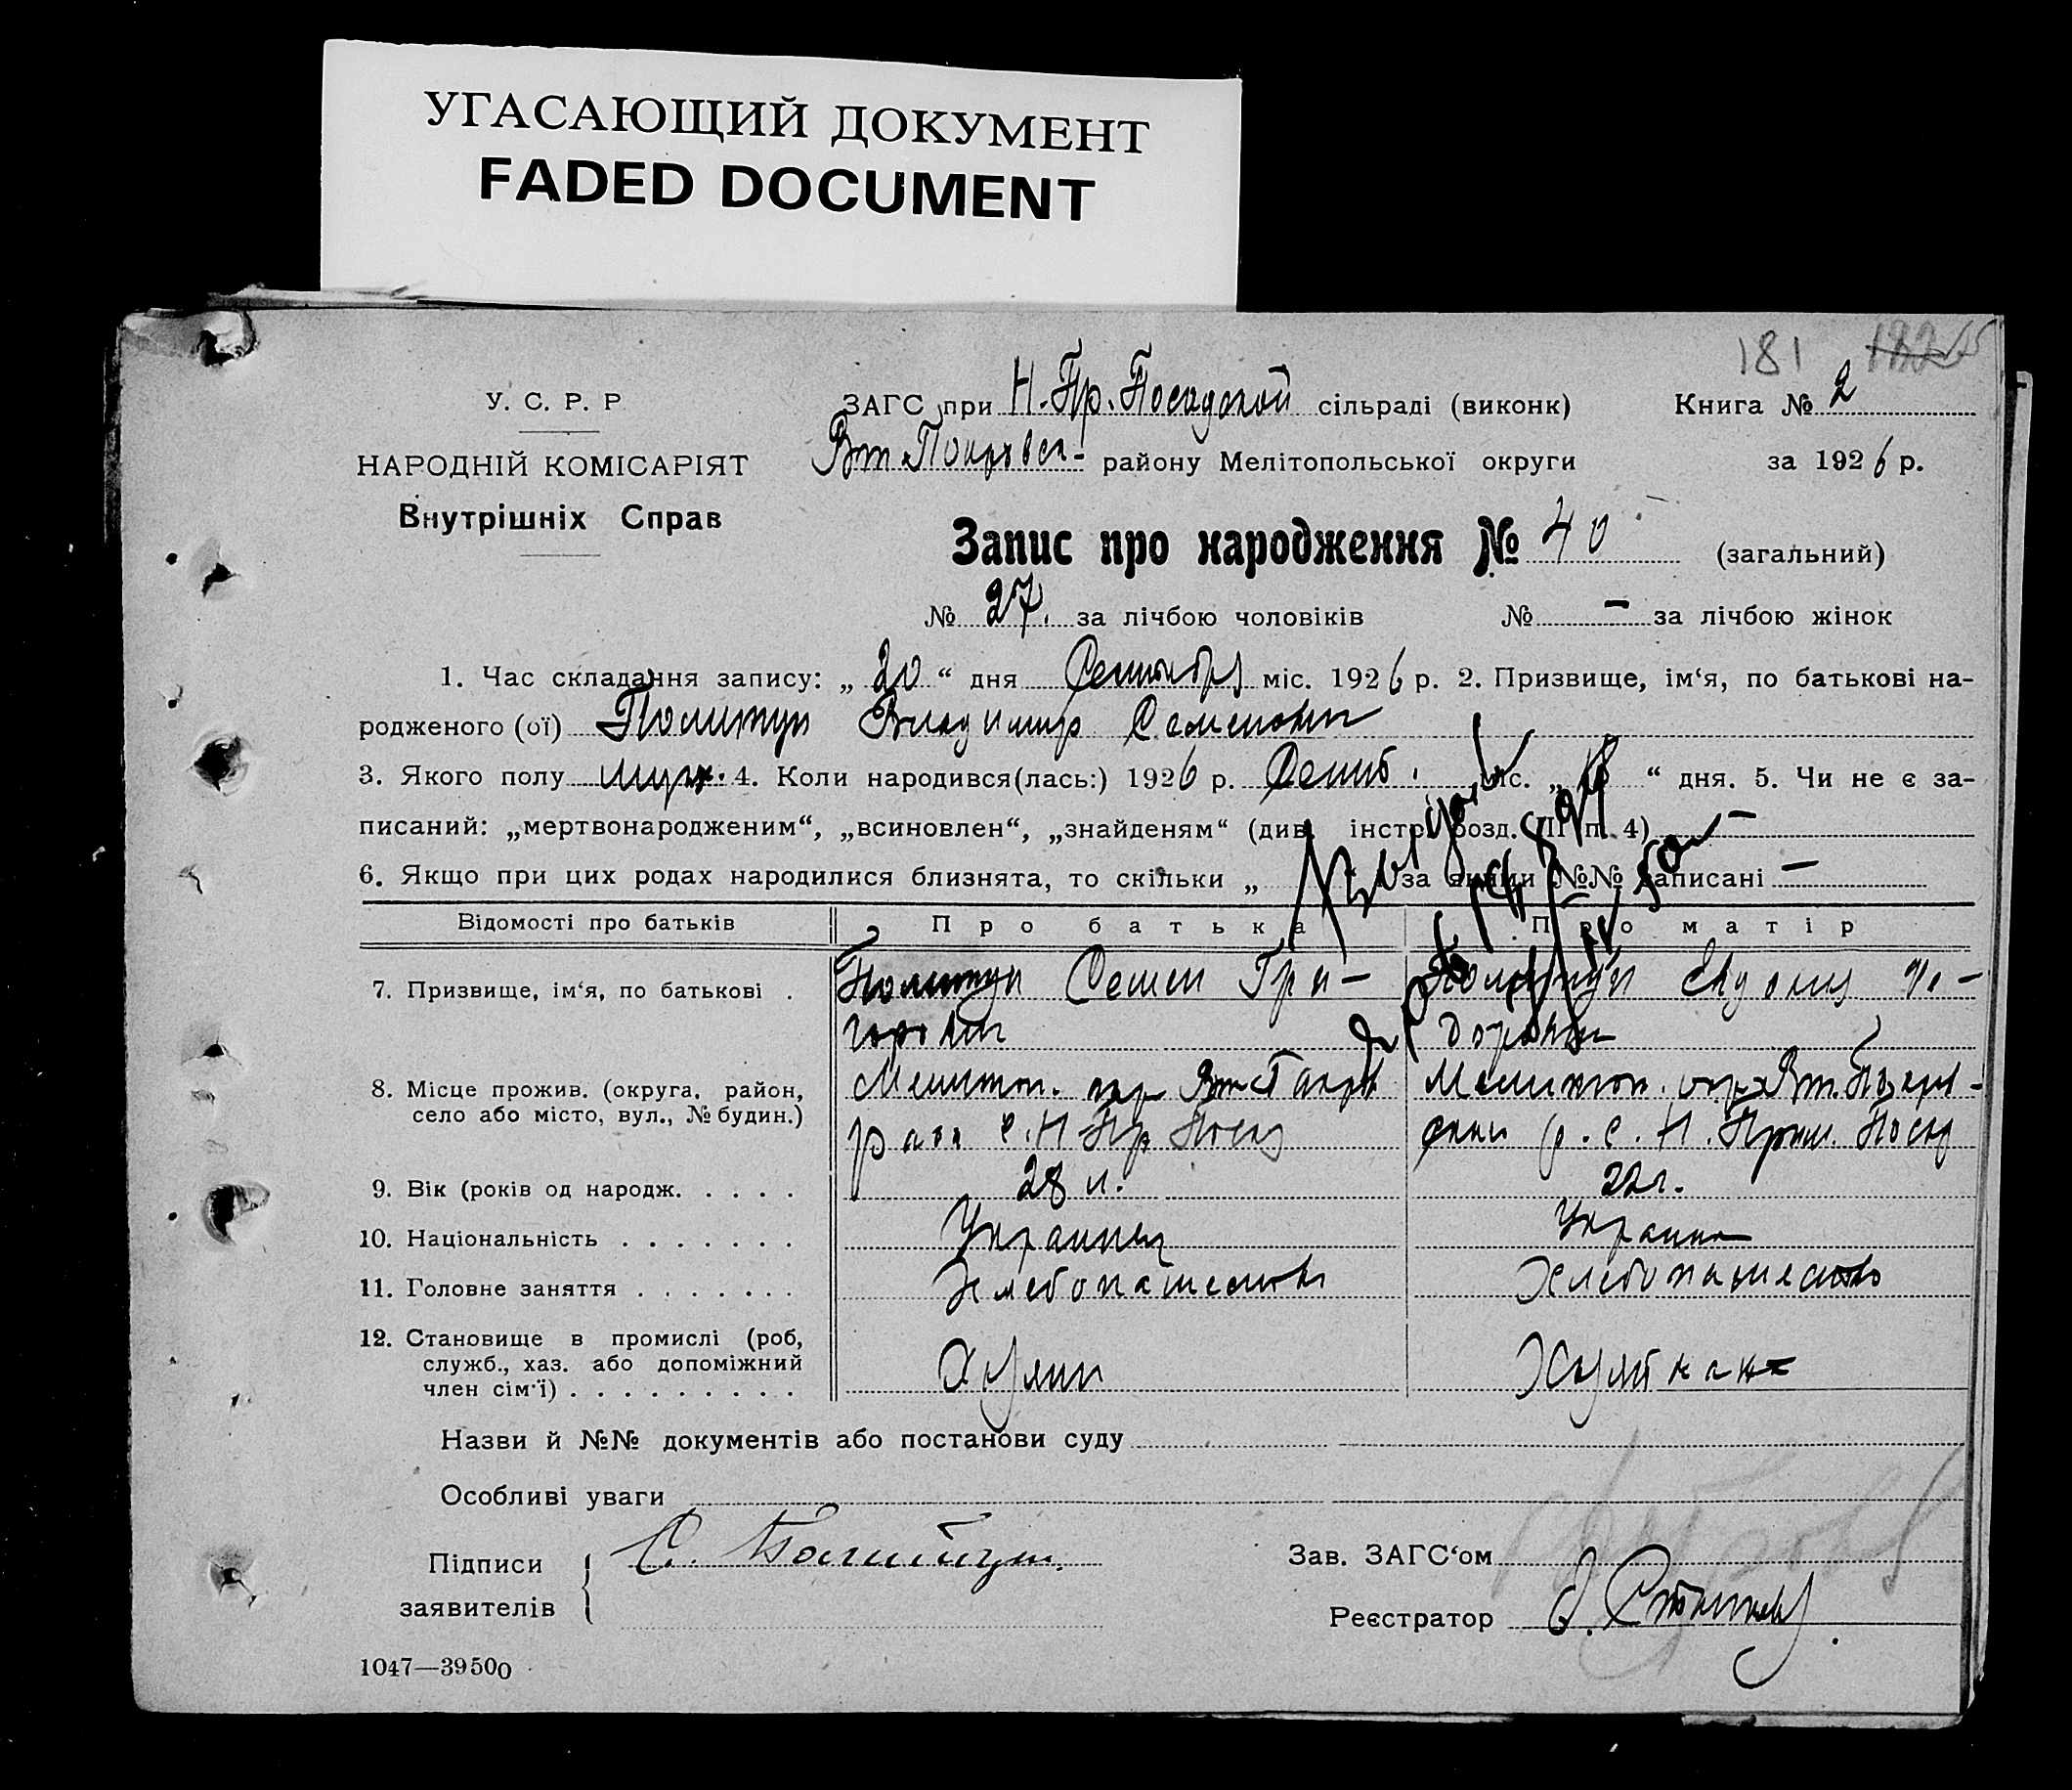 УГАСАЮЩИЙ ДОКУМЕНТ
FADED DOCUMENT
181
У. С. Р. Р
ЗАГС при Н. Пр. Посадской сільраді (виконк)
Книга № 2
НАРОДНІЙ КОМІСАРІЯТ
району Мелітопольської округи
за 1926 р.
Внутрішніх Справ
Запис про народження № 40 (загальний)
№ 27. за лічбою чоловіків № — за лічбою жінок
1. Час складання запису: „ 20 “ дня Сентября міс. 1926 р. 2. Призвище, ім‘я, по батькові на-
родженого (ої) Политун Владимир Семенович
3. Якого полу муж. 4. Коли народився(лась:) 1926 р. Сент. міс. „ “ дня. 5. Чи не є за-
писаний: „мертвонародженим“, „всиновлен“, „знайденям“ (див. інстр. розд. III п. 4) —
6. Якщо при цих родах народилися близнята, то скільки „ за якими №№ записані —
Відомості про батьків
Про батька
Про матір
7. Призвище, ім‘я, по батькові .
Политун Семен Гри-
горович
8. Місце прожив. (округа, район,
село або місто, вул., № будин.)
Мелитоп. окр
с. Н Пр Посад
Мелитоп. окр
р. с. Н. Прим. Посад
9. Вік (років од народж. . . . .
28 л.
22 г.
10. Національність . . . . . . .
Украинец
Украинка
11. Головне заняття . . . . . . .
Хлебопашество
Хлебопашество
12. Становище в промислі (роб,
служб., хаз. або допоміжний
член сім‘ї) . . . . . . . . .
Назви й №№ документів або постанови суду
Особливі уваги
Підписи
заявителів
С. Политун.
Зав. ЗАГС‘ом
Реєстратор
1047—39500